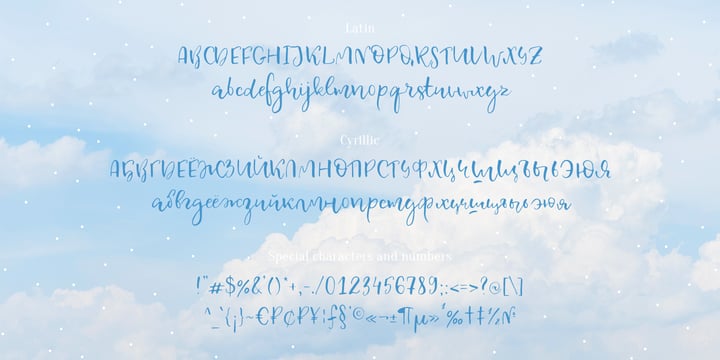 Latin
ABCDEFGHIJKLMNOPQRSTUVWXYZ
abcdefghijklmnopqrstuvwxyz
Cyrillic
АБВГДЕЁЖЗИЙКЛМНОПРСТУФХЦЧШЩЪЫЬЭЮЯ
абвгдеёжзийклмнопрстуфхцчшщъыьэюя
Special characters and numbers
!"#$%&'()*+,-./0123456789:;<=>?@[\]
^_`{¡}~€₽₵₽¥¦ƒ§¨©«¬±¶µ»¹‰†‡½№